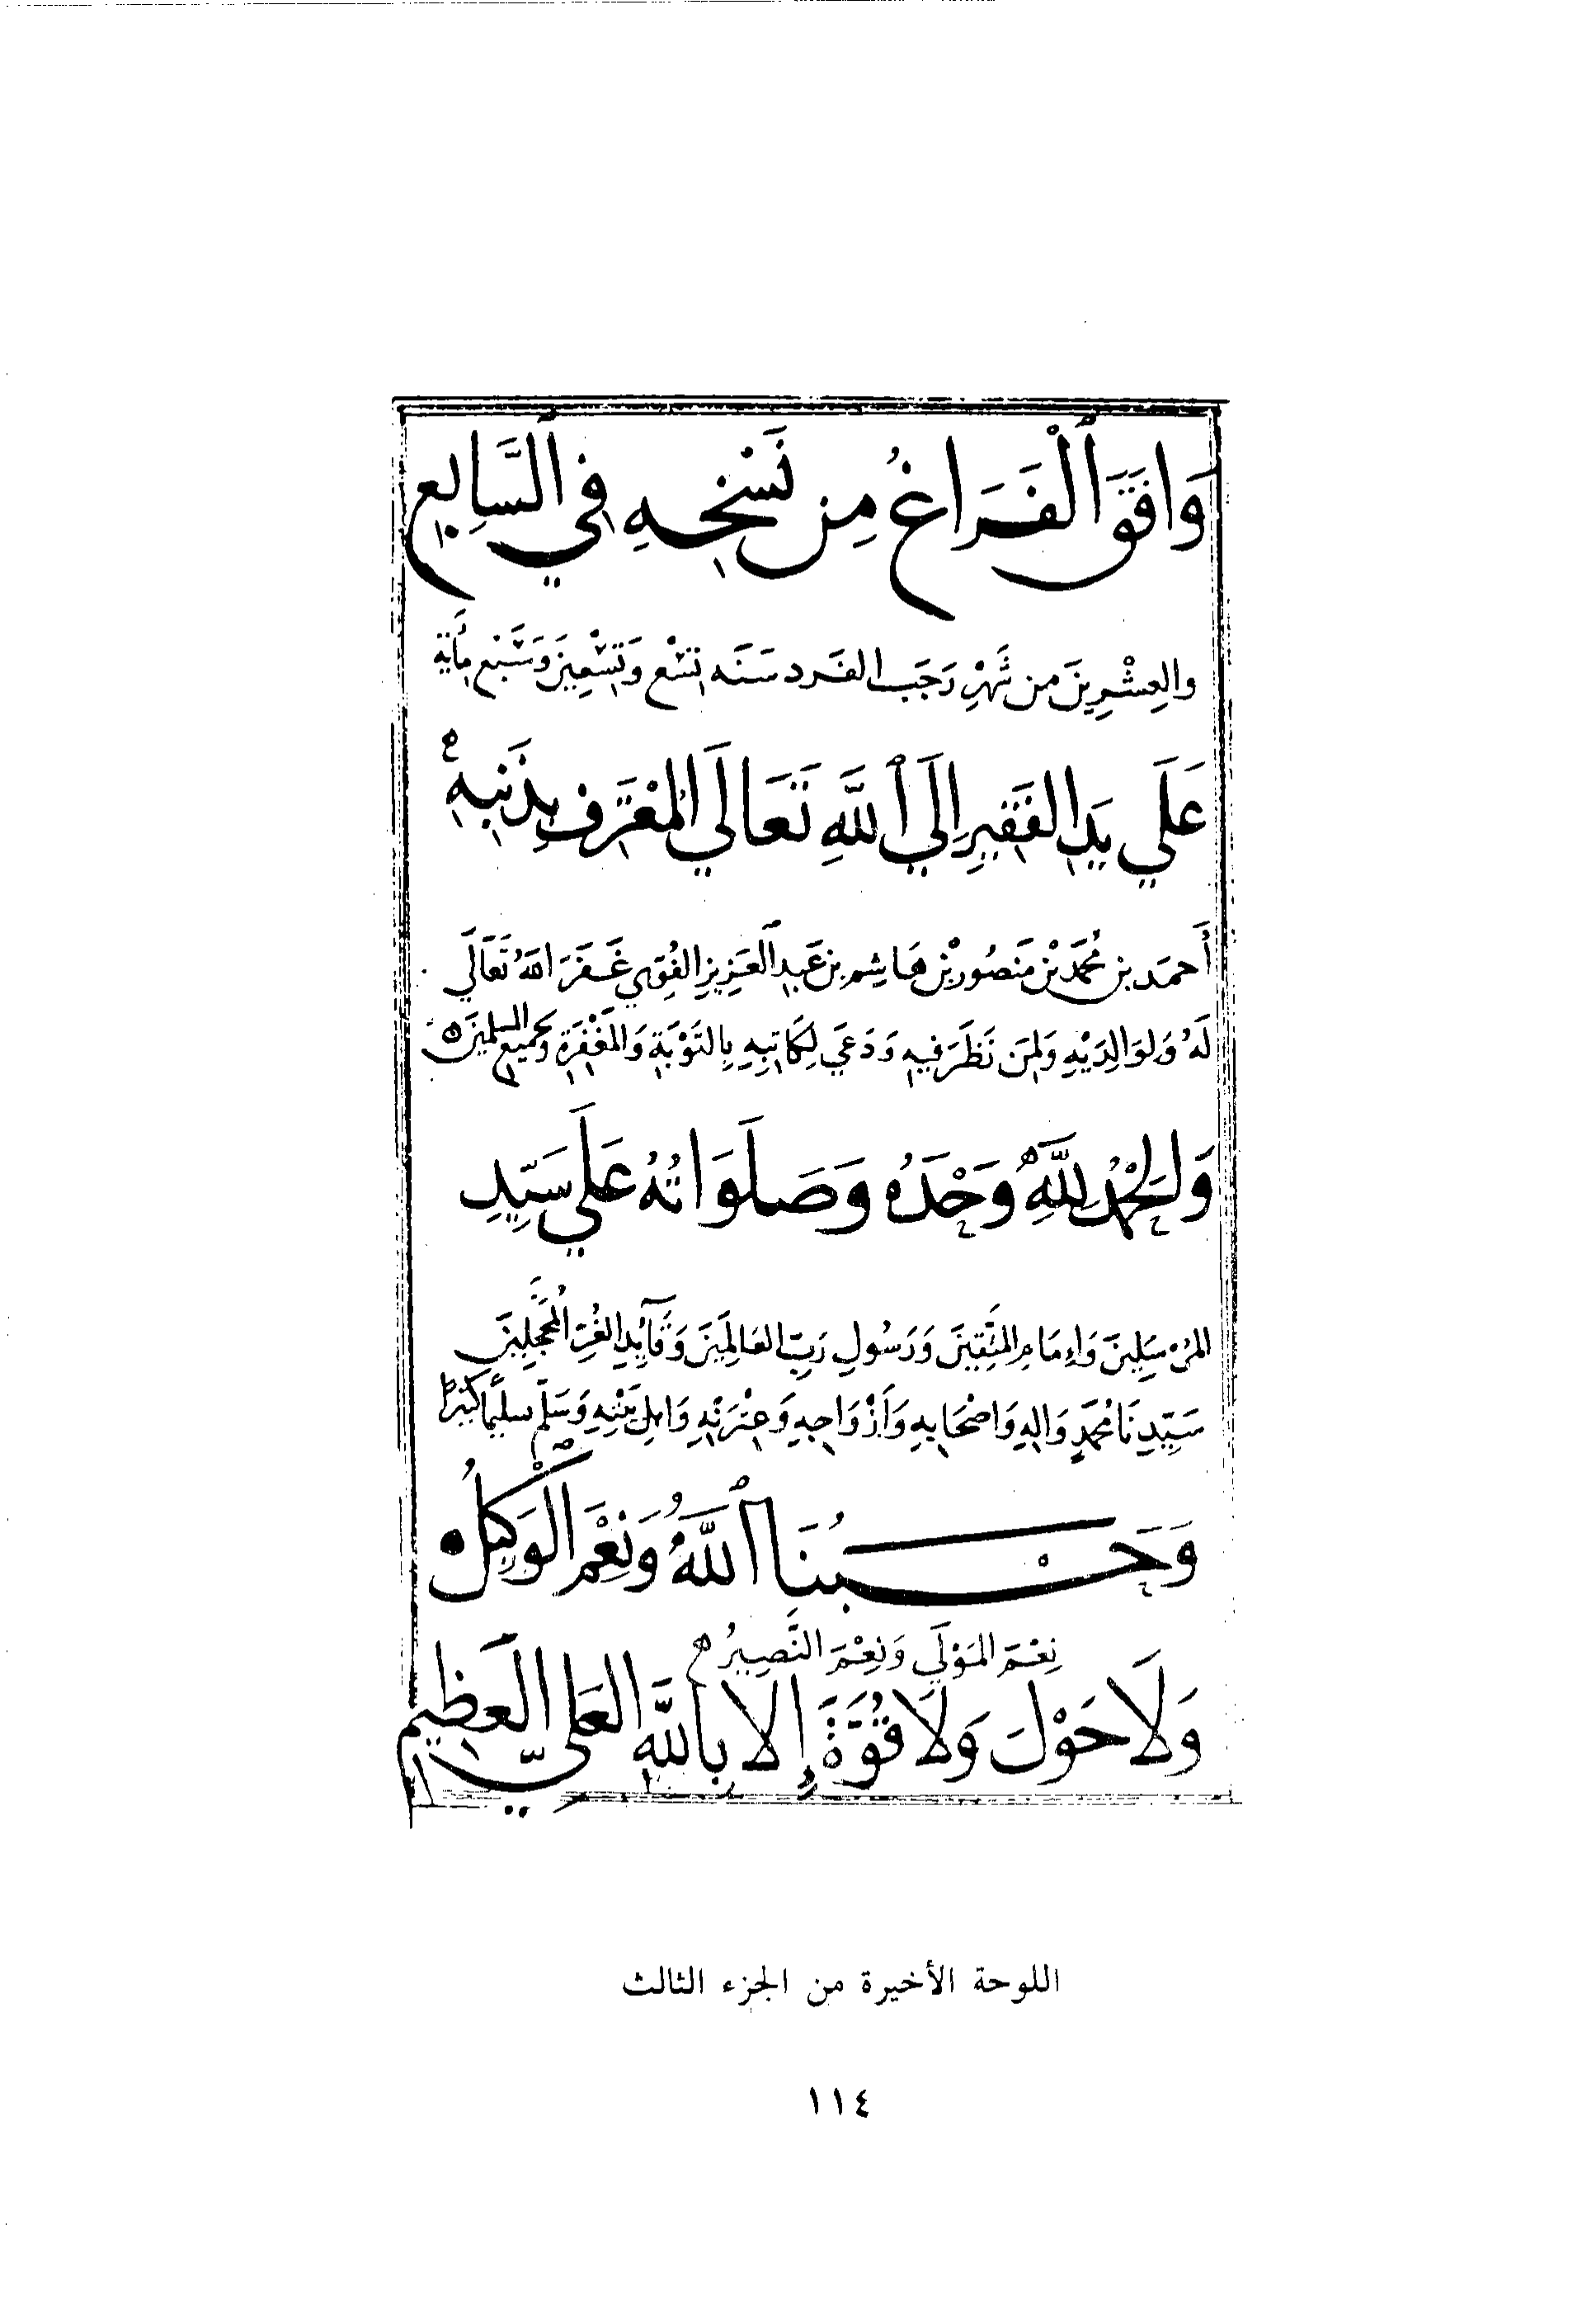 وَافَقَ ٱلْفَرَاغُ مِن نَسْخِهِ فِي ٱلسَّابِع
والعِشْرِينَ من شَهْرِ رَجَب الفَرد سَنَه تِسْع وَتِسْعِينَ وَسَبْع مِأَية
عَلَي يَدِ الفَقِيرِ إِلَي ٱللَّهِ تَعَالَي المُعْتَرَفِ بِذَنبِهِ
أَحمَد بن مُحَمَّد بْن مَنصُور بْن هَاشِم بن عَبدِ ٱلعَزِيزِ الفُوِّي غَفَرَ اللهُ تَعَالَي
لَهُ وَلوَالِدَيْهِ وَلِمَن نَظَرَ فِيهِ وَدَعَي لِكَاتِبِهِ بِالتَوْبَةِ وَالمَغْفِرَةِ وَلجَمِيعِ المسلمِينَ ه
وَلحَمْدُ لِلَّهِ وَحْدَهُ وَصَلَوَاتُهُ عَلَي سَيِّدِ
المُرْسَلِينَ وَإِمَامِ المُتَّقِينَ وَرَسُولِ رَبِّ العَالَمِينَ وَقَآئِدِ الغُرِّ المُحَجَّلِينَ
سَيِّدِنَا مُحَمَّدٍ وَالِهِ وَاصْحَابِهِ وَأَزْوَاجِهِ وَعِتْرَتِهِ وَاهلِ بَيْتِهِ وَسَلَّم تسليمًا كثيرًا
وَحَسْبُنَا ٱللَّهُ وَنِعْمَ الوَكِيلُ
نِعْمَ المَوْلَي وَنِعْمَ النَّصِيرُ
وَلَا حَوْلَ وَلَا قُوَّةَ إِلا بِاللَّهِ العَلِيِّ العَظِيمِ
اللوحة الأخيرة من الجزء الثالث
١١٤